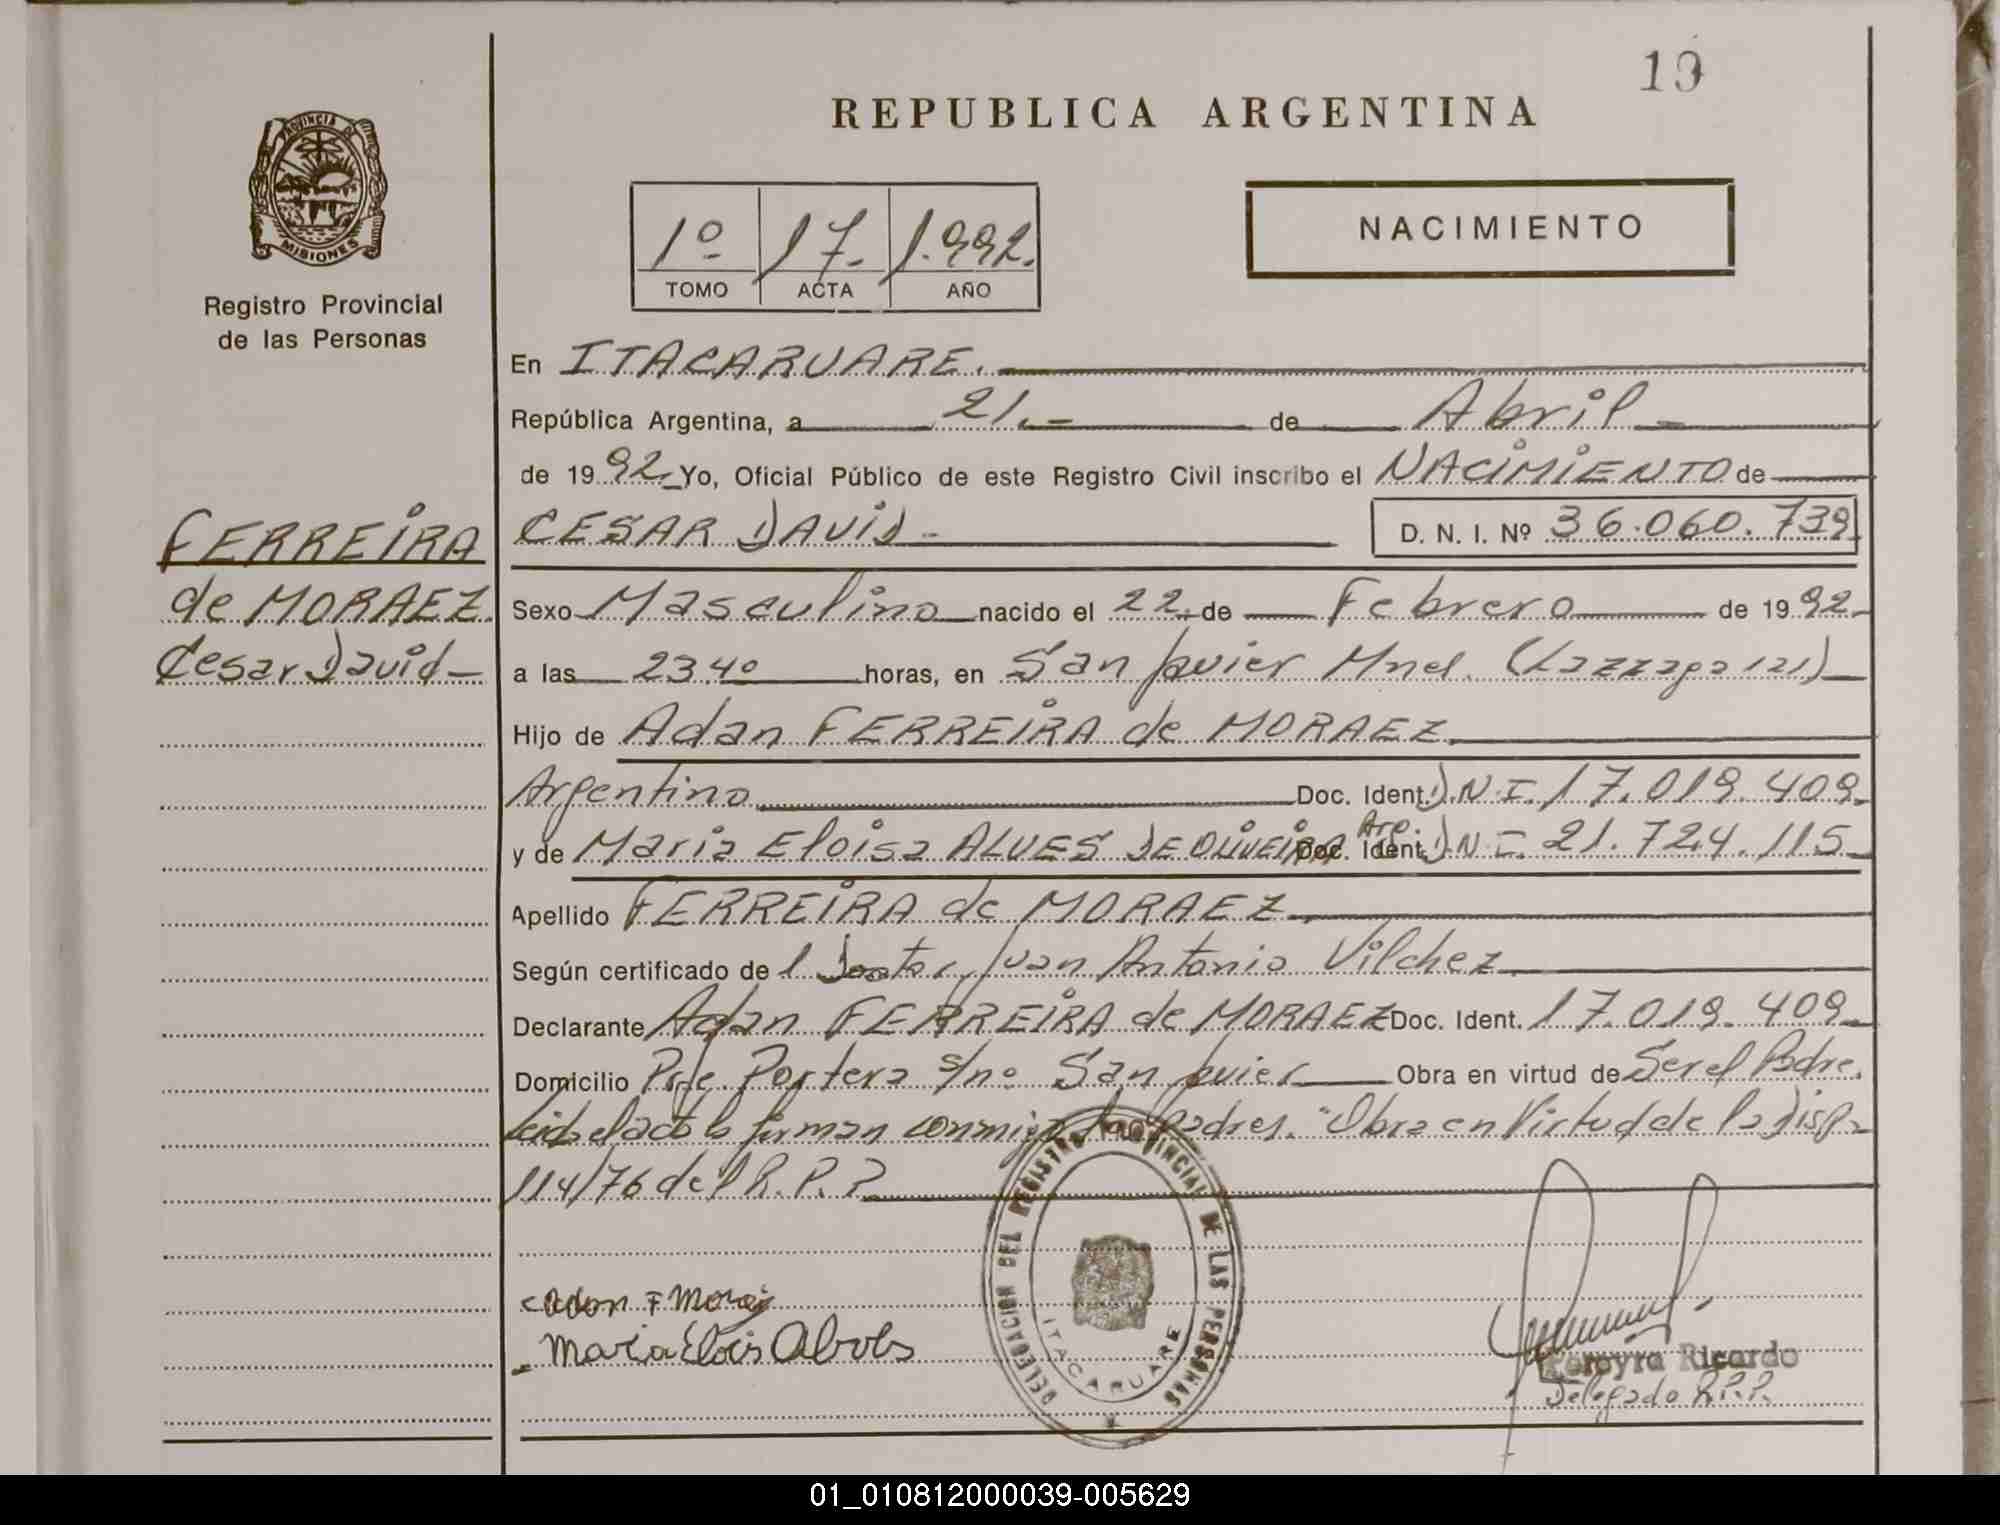 19
REPUBLICA ARGENTINA
PROVINCIA DE
MISIONES
Registro Provincial
de las Personas
1º 17- 1.992.
TOMO ACTA AÑO
NACIMIENTO
En ITACARUARE.
República Argentina, a 21.- de Abril
de 19 92 Yo, Oficial Público de este Registro Civil inscribo el NACIMIENTO de
FERREIRA
de MORAEZ.
Cesar David
CESAR DAVID D. N. I. Nº 36.060.739
Sexo Masculino nacido el 22 de Febrero de 19 92
a las 23.40 horas, en San Javier Mnes. (
Hijo de Adan FERREIRA de MORAEZ
Argentino Doc. Ident. D.N.I. 17.019.409
y de Maria Eloisa ALVES DE OLIVEIRA Arg. Doc. Ident. D.N.I. 21.724.115
Apellido FERREIRA de MORAEZ
Según certificado de l Doctor Juan Antonio Vilchez
Declarante Adan FERREIRA de MORAEZ Doc. Ident. 17.019.409
Domicilio Pje. Portera s/nº San Javier Obra en virtud de Ser el Padre.
Leida el acta la firman conmigo los padres. "Obra en Virtud de la Disp.
114/76 del R.P.P
Adan F Moraez
Maria Elois Alves
DELEGACION DEL REGISTRO PROVINCIAL DE LAS PERSONAS
ITACARUARE
Pereyra Ricardo
Delegado R.P.P.
01_010812000039-005629